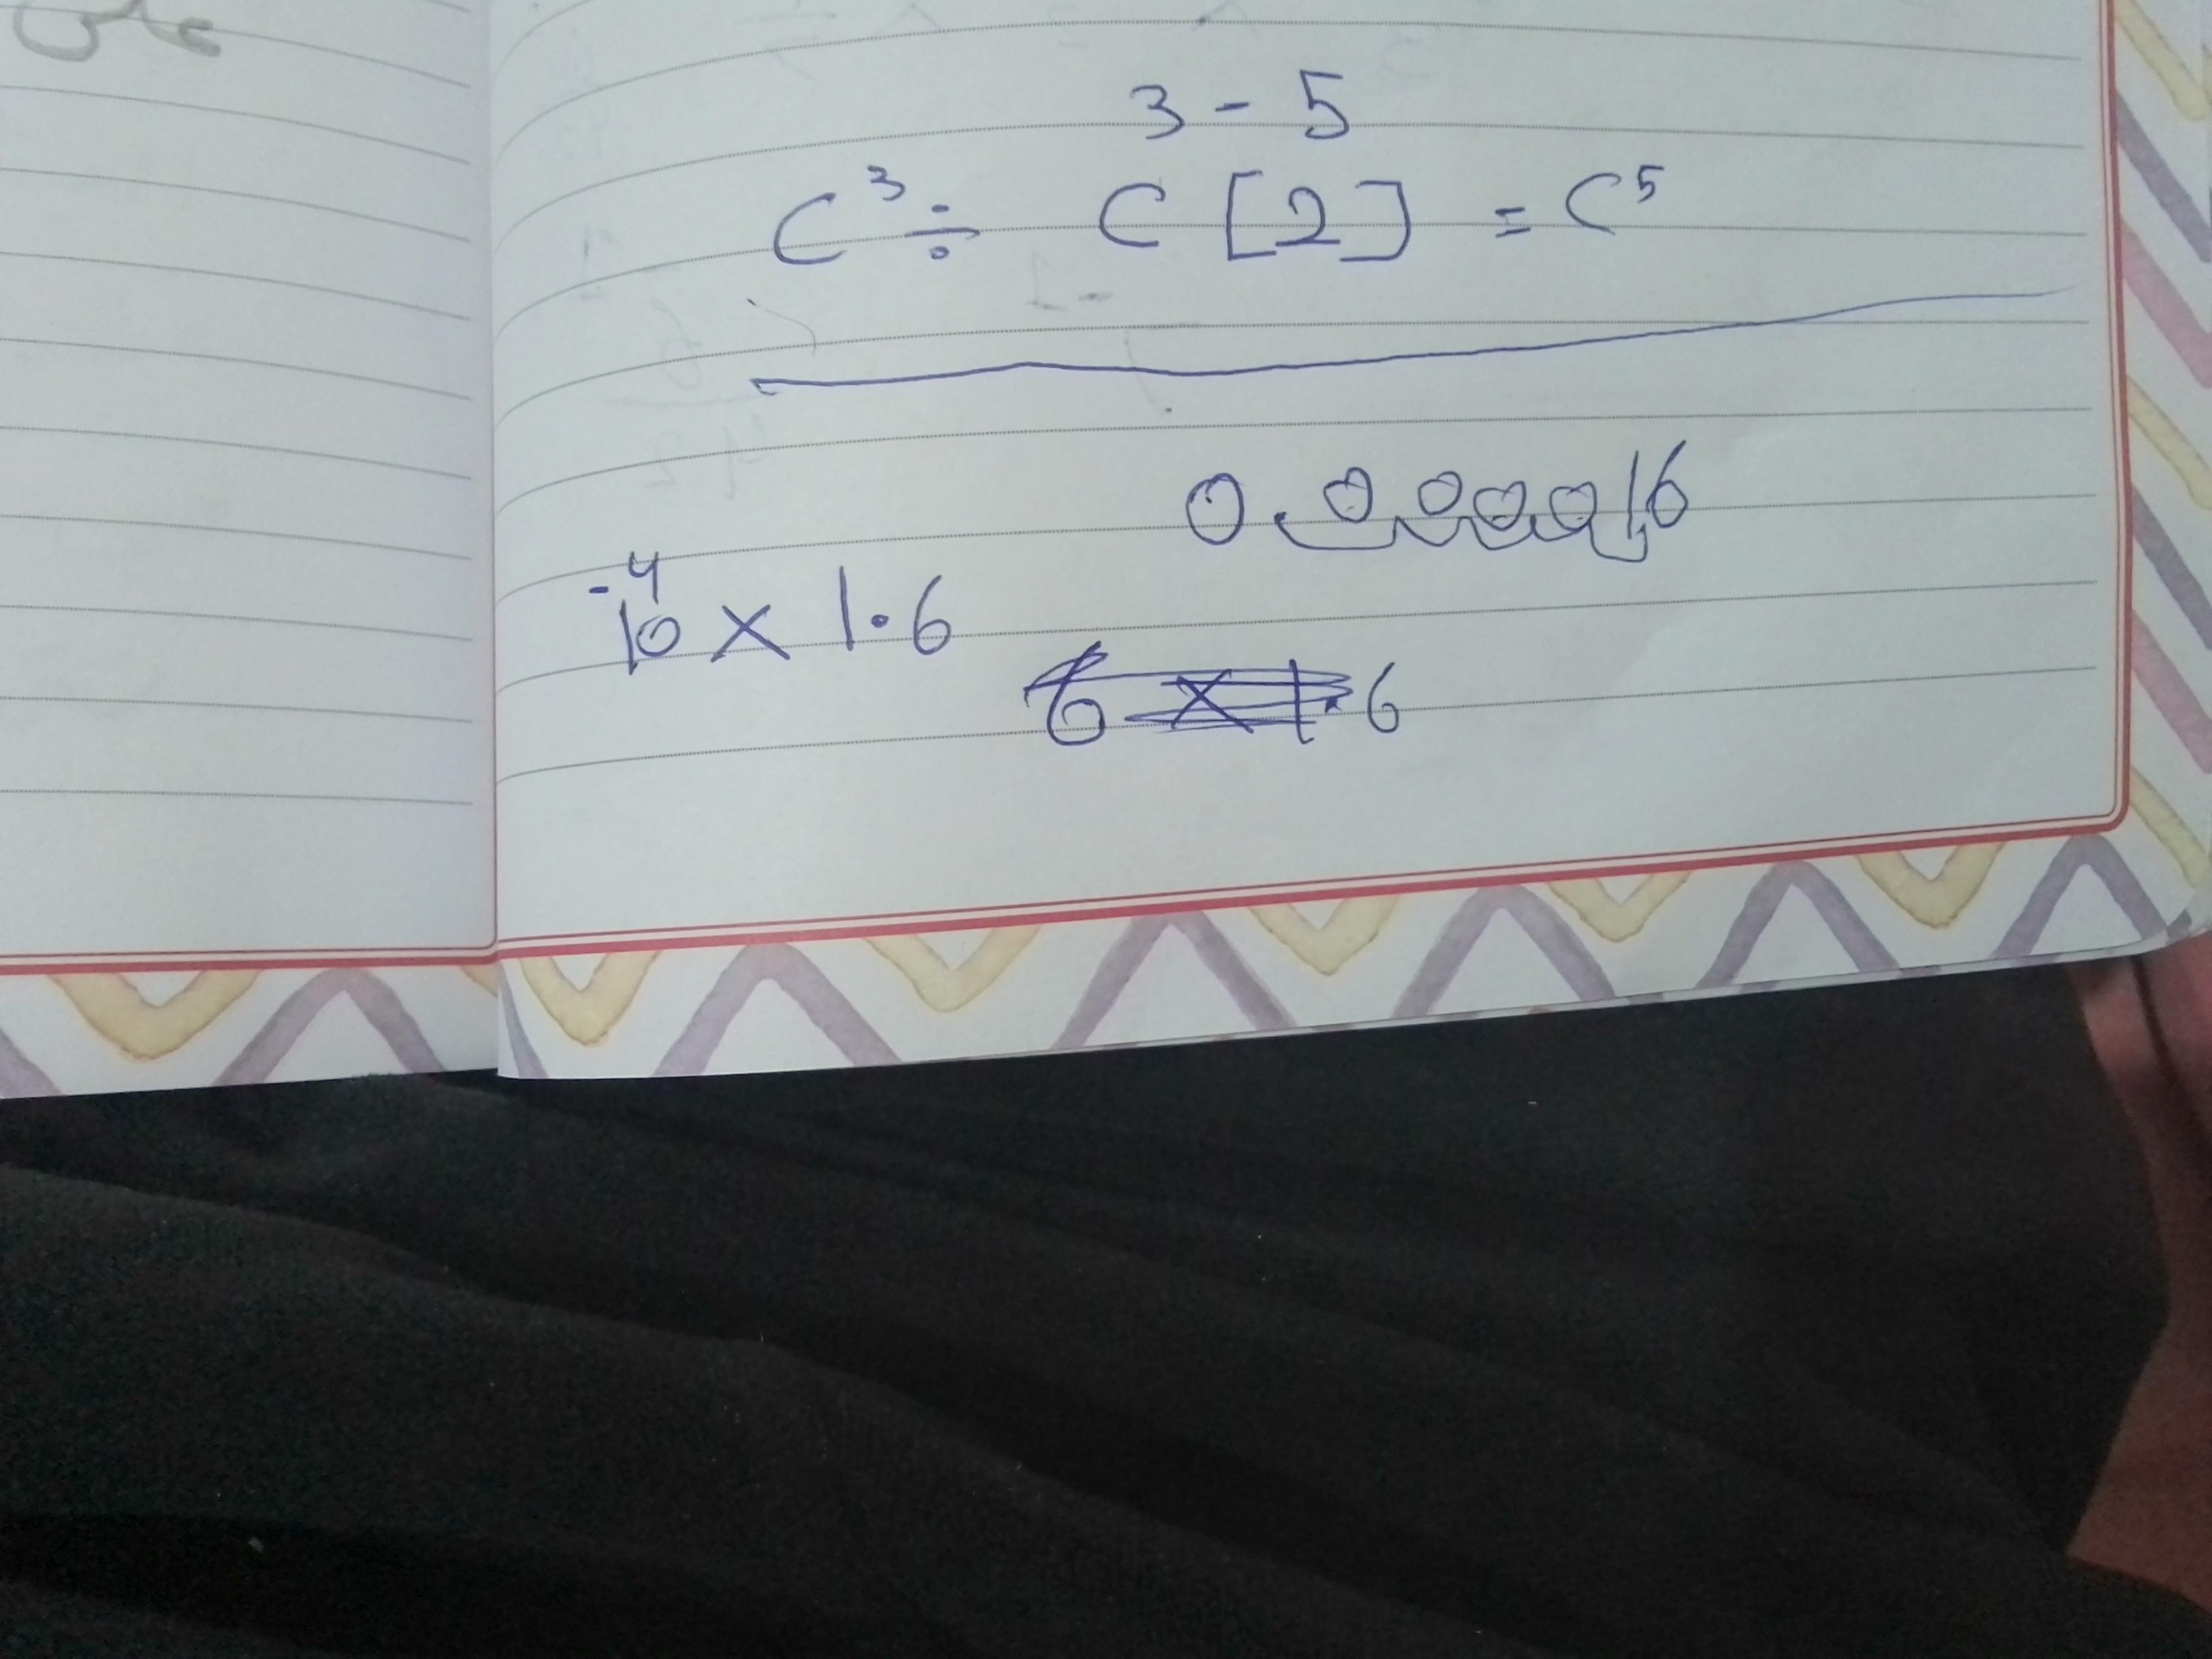 3 - 5
C³ ÷ C [2] = C⁵
0.000016
10⁻⁴ × 1.6
6 × 1.6